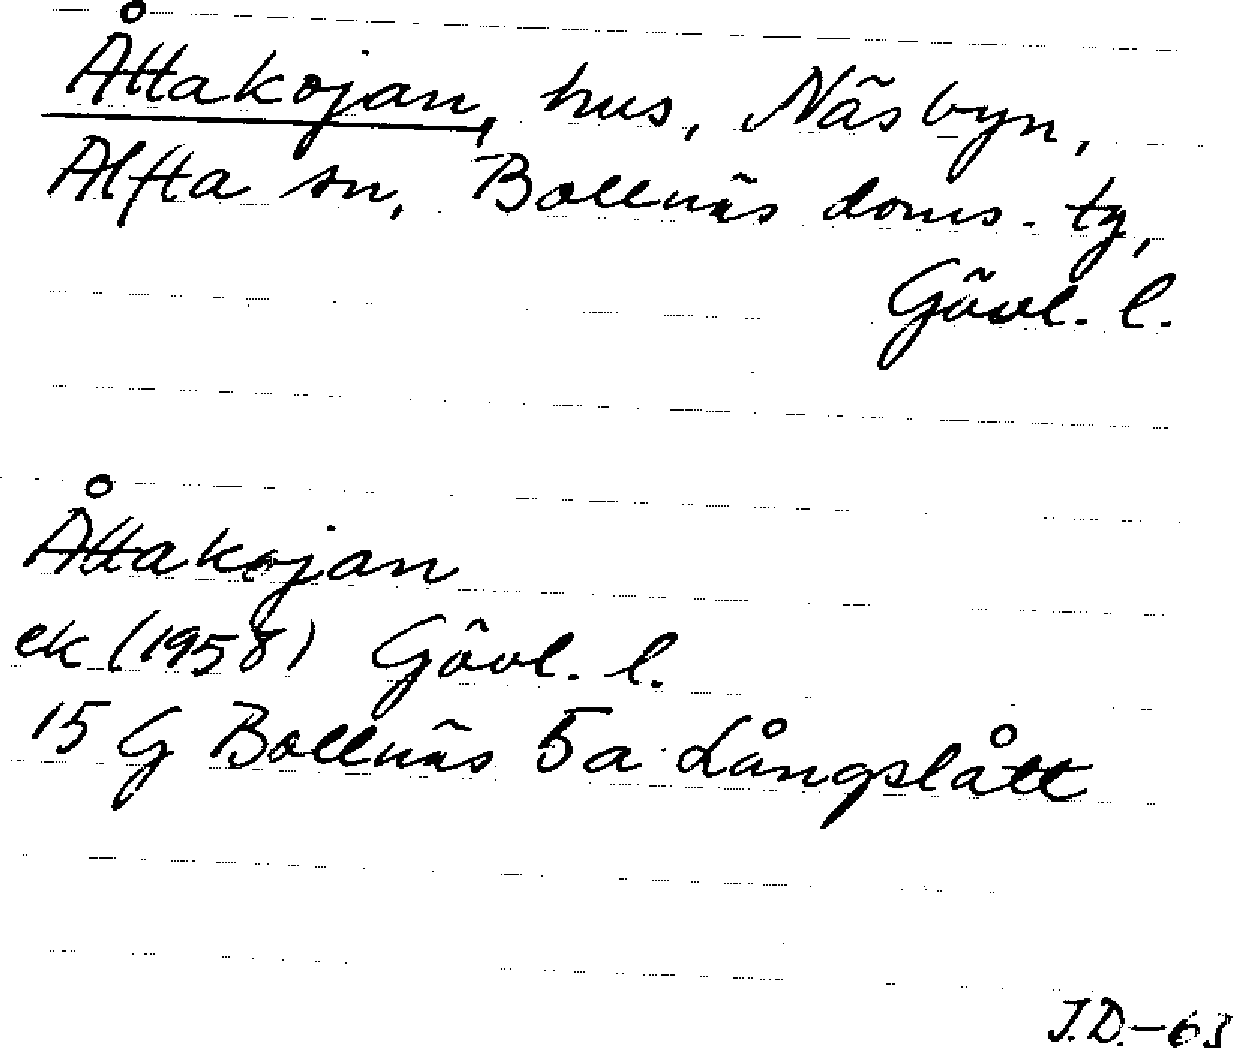 Åttakojan, hus, Näsbyn,
Alfta sn, Bollnäs doms. tg,
Gävl. l.
Åttakojan
ek (1958) Gävl. l.
15 G Bollnäs 5a Långslått
J.D.-63